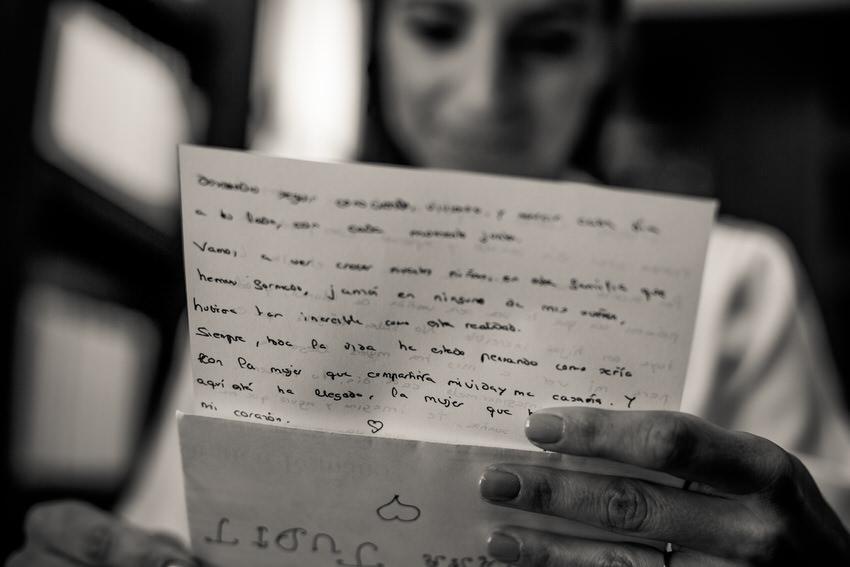 seguir creciendo, viviendo, y cada día
a tu lado, con cada momento juntos.
Vamos a ver crecer nuestros niños, en esta familia que
hemos formado, jamás en ninguno de mis sueños,
hubiera tan increíble como esta realidad.
Siempre, toda la vida he estado pensando como sería
la mujer que compartiría mi vida y me casaría. Y
aquí está ha llegado, la mujer que
mi corazón. ♡
♡
JUDIT